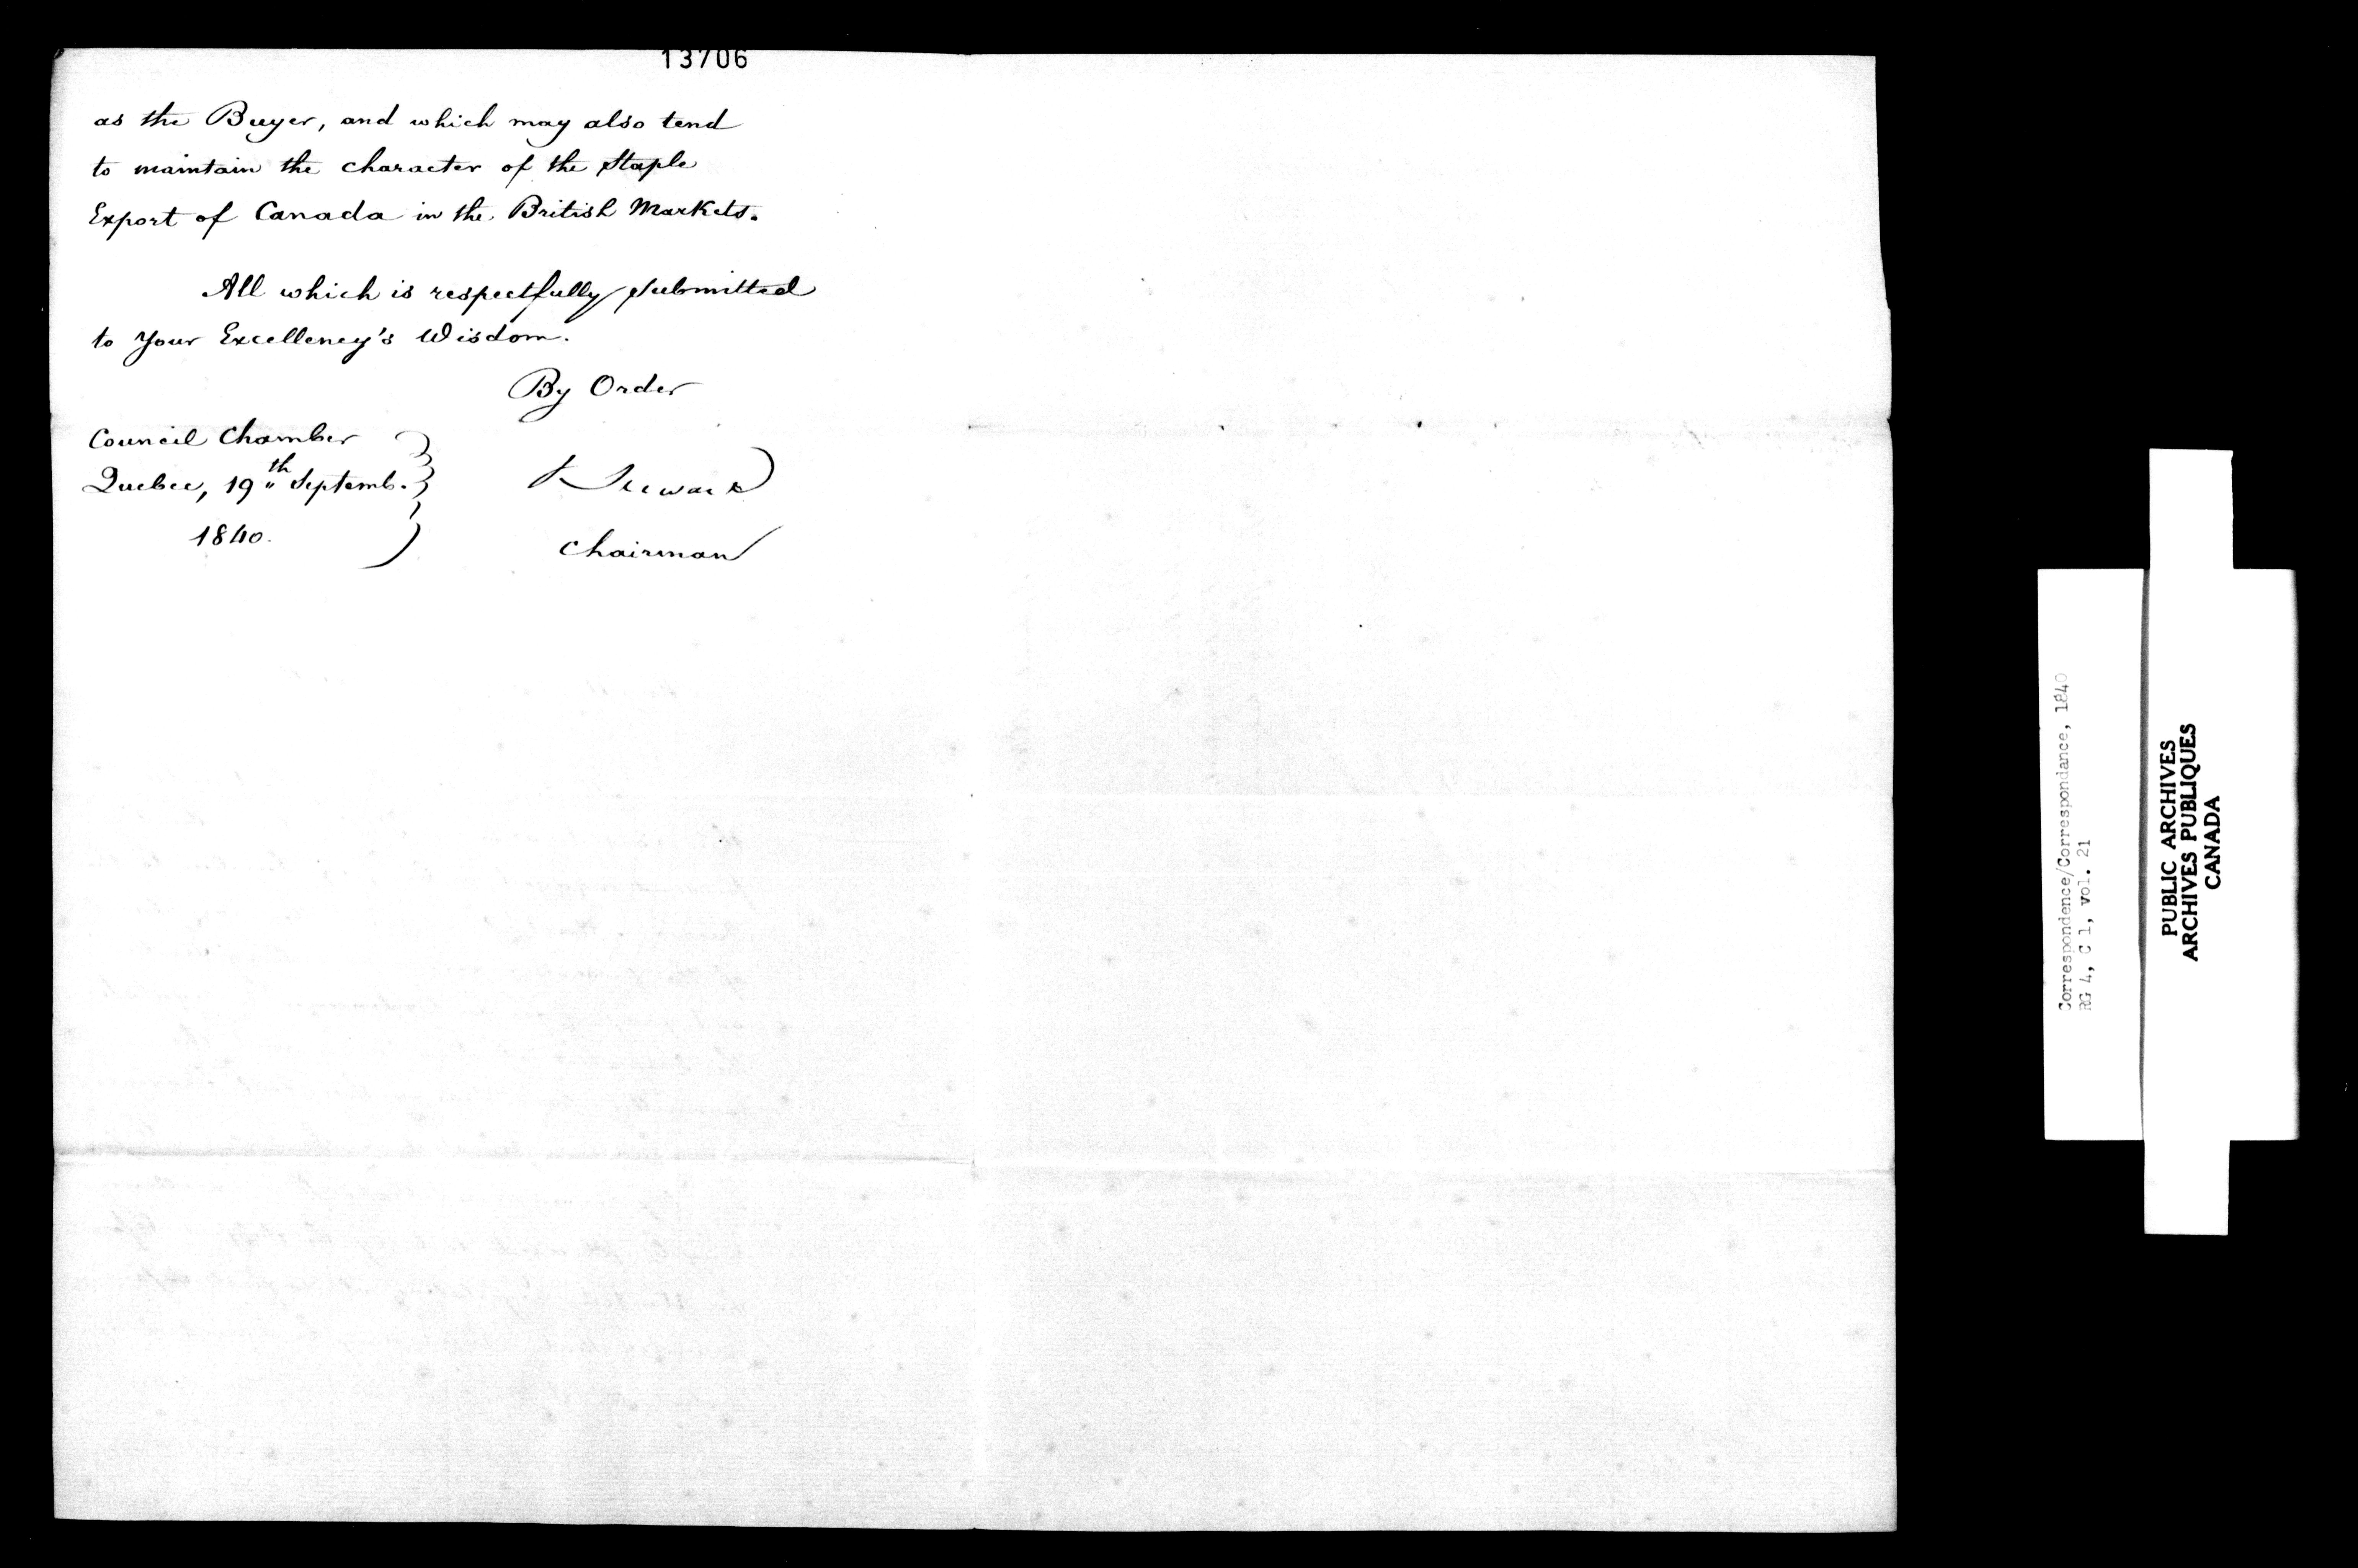 13706
as the Buyer, and which may also tend
to maintain the character of the Staple
Export of Canada in the British Markets.
All which is respectfully submitted
to Your Excellency's Wisdom.
By Order
Council Chamber
Quebec, 19th Septemb.
1840.
Chairman
Correspondence/Correspondance, 1840
RG 4, C 1, vol. 21
PUBLIC ARCHIVES
ARCHIVES PUBLIQUES
CANADA